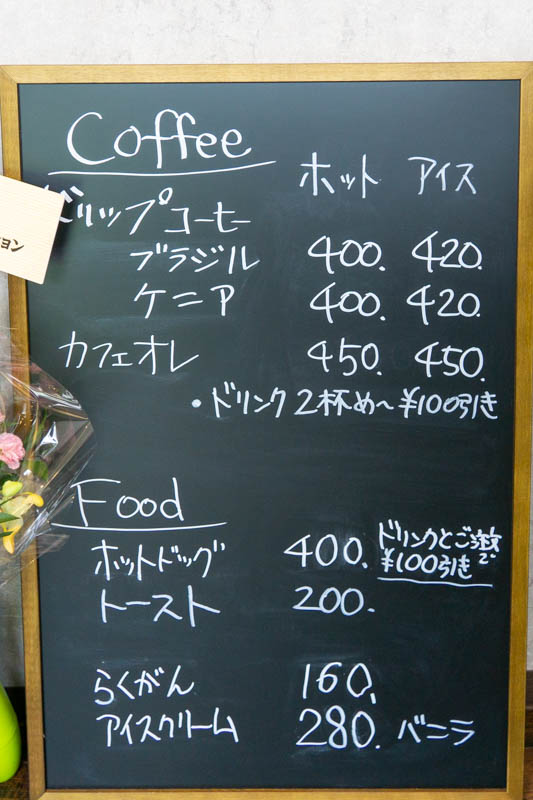 Coffee
ホット アイス
ドリップコーヒー
ョン
ブラジル 400. 420.
ケニア 400. 420.
カフェオレ 450. 450.
・ドリンク 2杯め〜 ¥100引き
Food
ホットドッグ 400. ドリンクとご注文で
¥100引き
トースト 200.
らくがん 160.
アイスクリーム 280. バニラ